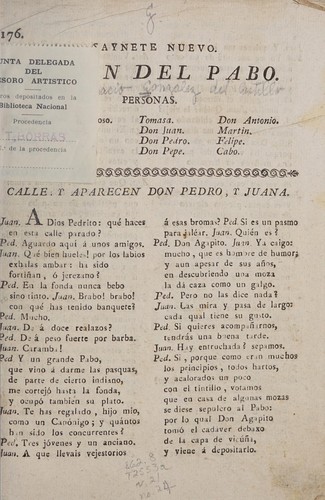 176.
SAYNETE NUEVO.
N DEL PABO.
JUNTA DELEGADA
DEL
TESORO ARTISTICO
Libros depositados en la
Biblioteca Nacional
Procedencia
T. BORRAS
de la procedencia
PERSONAS.
oso. Tomasa. Don Antonio.
Don Juan. Martin.
Don Pedro. Felipe.
Don Pepe. Cabo.
CALLE, Y APARECEN DON PEDRO, Y JUANA.
Juan. A Dios Pedrito: qué haces
en esta calle parado?
Ped. Aguardo aquí á unos amigos.
Juan. Qué bien huele! por los labios
exhalas ambar: ha sido
fortiñan, ó jerezano?
Ped. En la fonda nunca bebo
sino tinto. Juan. Brabo! brabo!
con qué has tenido banquete?
Ped. Mucho.
Juan. De á doce realazos?
Ped. De á peso fuerte por barba.
Juan. Caramba!
Ped Y un grande Pabo,
que vino á darme las pasquas,
de parte de cierto indiano,
me cortejó hasta la fonda,
y ocupó tambien su plato.
Juan. Te has regalado, hijo mio,
como un Canónigo; y quántos
han sido los concurrentes?
Ped. Tres jóvenes y un anciano.
Juan. A que llevais vejestorios
á esas bromas? Ped. Si es un pasmo
para jalear. Juan. Quién es?
Ped. Don Agapito. Juan. Ya caigo:
mucho, que es hombre de humor;
y aun apesar de sus años,
en descubriendo una moza
la dá caza como un galgo.
Ped. Pero no las dice nada?
Juan. Las mira y pasa de largo:
cada qual tiene su gusto.
Ped. Si quieres acompañarnos,
tendrás una buena tarde.
Juan. Hay entruchada? sepamos.
Ped. Si, porque como eran muchos
los principios, todos hartos,
y acalorados un poco
con el tintilio, votamos
que en casa de algunas mozas
se diese sepulcro al Pabo:
por lo qual Don Agapito
tomó el cadaver debaxo
de la capa de vicuña,
y viene á depositarlo.